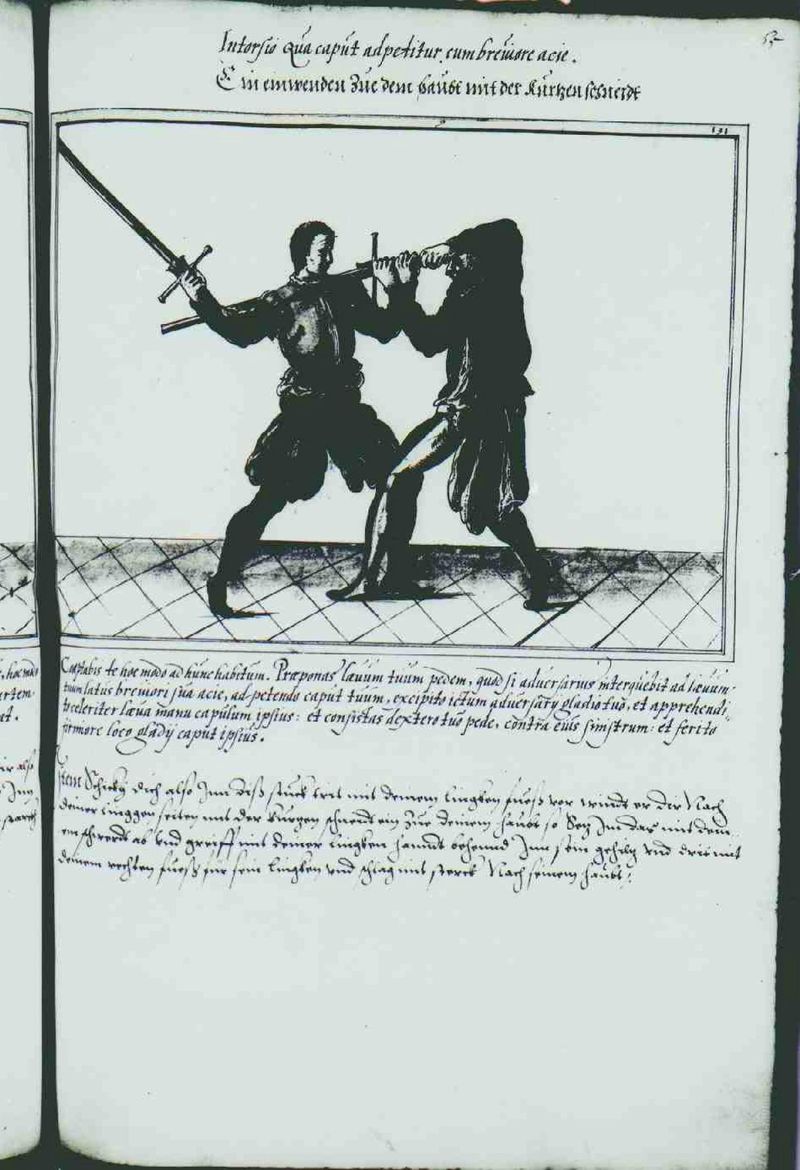 52
Intorsio Qua caput adpetitur cum breviore acie.
Ein einwenden Zue dem haubt mit der Kurtzen schneidt
131
Captabis te hoc modo ad hunc habitum. Præponas lævum tuum pedem, quod si adversarius intorquebit ad lævum
tuum latus breviori sua acie, adpetendo caput tuum, excipito ictum adversarij gladio tuo, et apprehendi,
to celeriter læva manu capulum ipsius: et consistas dextero tuo pede, contra eius sinistrum: et ferito
firmore loco gladij caput ipsius.
Item Schickh dich also Inn diß stuckh trit mit deinem linggken fuoß vor windt er dir Nach
deiner linggen seiten mit der kurtzen schneidt ein Zue deinem haubt so Setz Im das mit dem
schwerdt ab vnd greiff mit deiner lingken handt behennd Inn sein gehiltz vnd drit mit
deinem rechten fuoß für sein lingken vnd schlag mit sterck Nach seinem haubt.